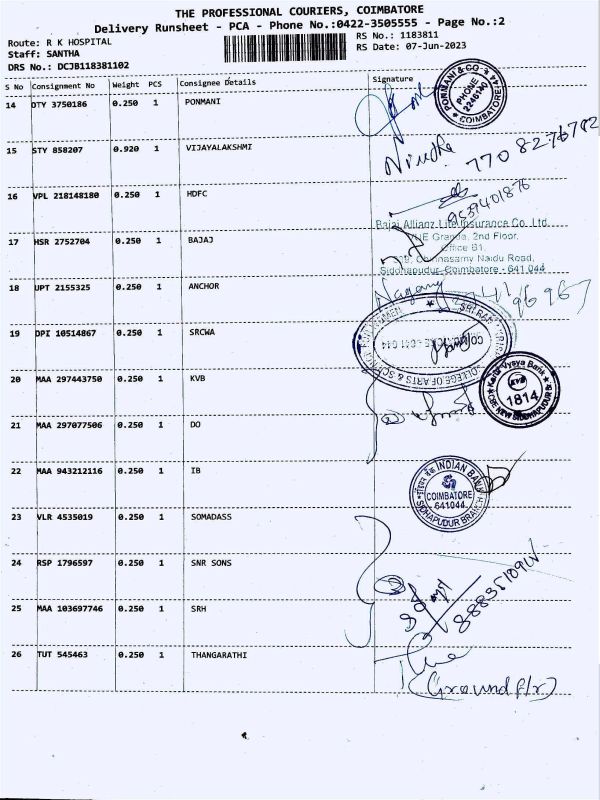 THE PROFESSIONAL COURIERS, COIMBATORE
Delivery Runsheet - PCA - Phone No.:0422-3505555 - Page No.:2
Route: R K HOSPITAL
Staff: SANTHA
DRS No.: DCJB118381102
RS No.: 1183811
RS Date: 07-Jun-2023
S No Consignment No Weight PCS Consignee Details Signature
14 DTY 3750186 0.250 1 PONMANI
PONMANI & CO
PHONE
COIMBATORE
15 STY 858207 0.920 1 VIJAYALAKSHMI
7708276782
16 VPL 218148180 0.250 1 HDFC
9659401876
Bajaj Allianz Life Insurance Co. Ltd.
17 HSR 2752704 0.250 1 BAJAJ
2nd Floor,
Office B1,
Naidu Road,
Siddhapudur, Coimbatore - 641 044
18 UPT 2155325 0.250 1 ANCHOR
19 DPI 10514867 0.250 1 SRCWA
COLLEGE OF ARTS & SCIENCE
20 MAA 297443750 0.250 1 KVB
Karur Vysya Bank
KVB
1814
21 MAA 297077506 0.250 1 DO
22 MAA 943212116 0.250 1 IB
INDIAN BANK
COIMBATORE
641044
SIDHAPUDUR BRANCH
23 VLR 4535019 0.250 1 SOMADASS
24 RSP 1796597 0.250 1 SNR SONS
25 MAA 103697746 0.250 1 SRH
26 TUT 545463 0.250 1 THANGARATHI
(Ground flr)